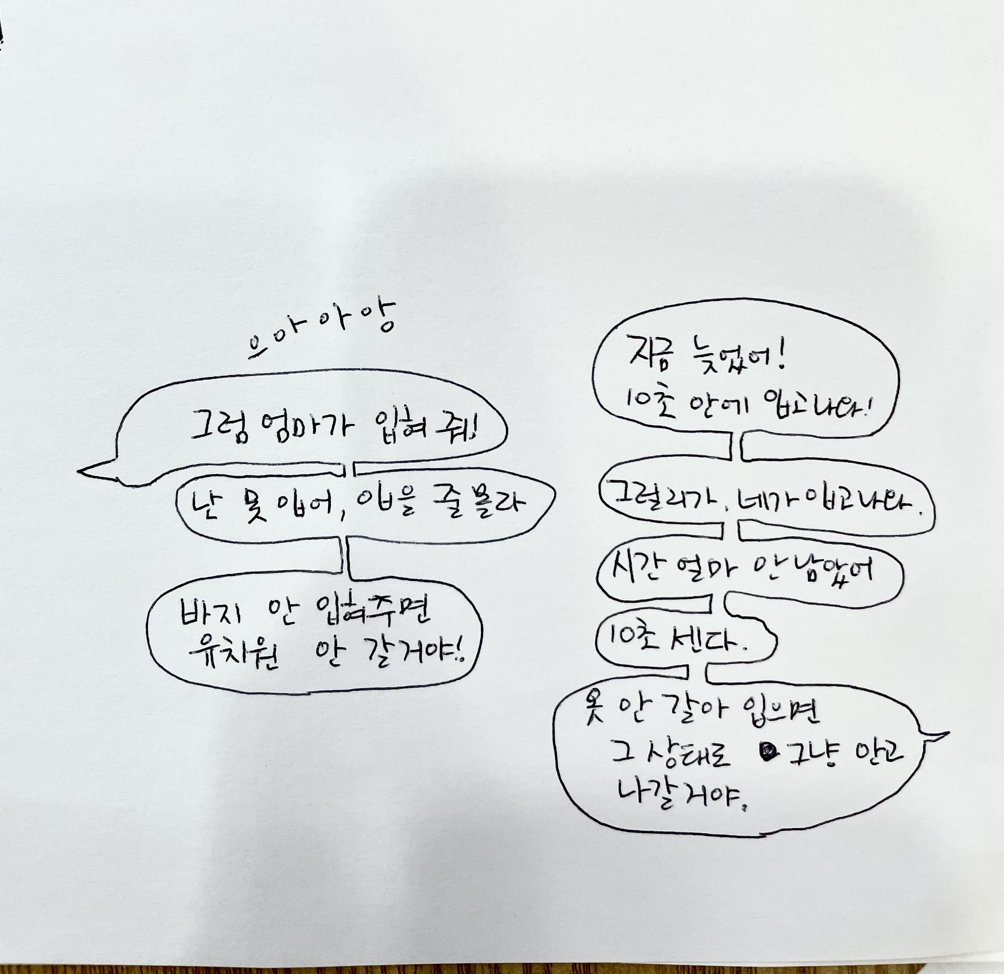 으아아앙
그럼 엄마가 입혀 줘!
난 못 입어, 입을 줄 몰라
바지 안 입혀주면
유치원 안 갈거야!
지금 늦었어!
10초 안에 입고나와!
그럴리가. 네가 입고나와.
시간 얼마 안 남았어
10초 센다.
옷 안 갈아 입으면
그 상태로 그냥 안고
나갈거야.